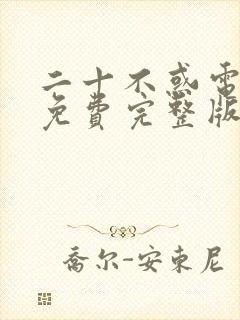 二十不惑電
免費完整版
喬尔-安東尼